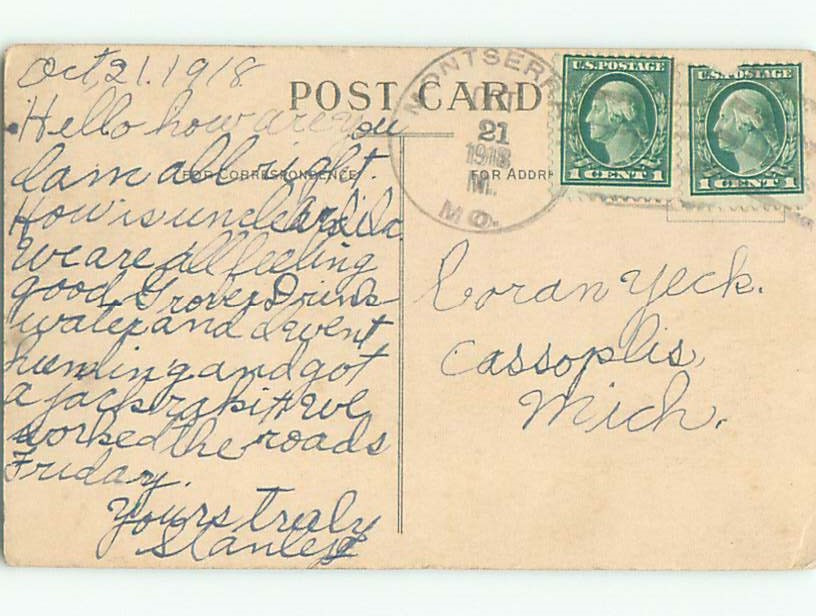 Oct, 21. 1918
POST CARD
Hello how are you
I am all right.
FOR CORRESPONDENCE
How is uncle
We are all feeling
good. Grover Drink
water and I went
hunting and got
a jack rabitt we
worked the roads
Friday.
Yours truly
Stanley
MONTSERR
21
1918
M.
MO.
U.S. POSTAGE
1 CENT 1
U.S. POSTAGE
1 CENT 1
FOR ADDR
Coran Yeck.
Cassoplis,
Mich.